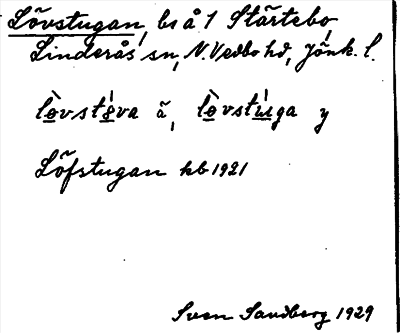 Lövstugan, bs å 1 Stärtebo,
Linderås sn, N. Vedbo hd, Jönk. l.
ä, y
Löfstugan kb 1921
Sven Sandberg 1929